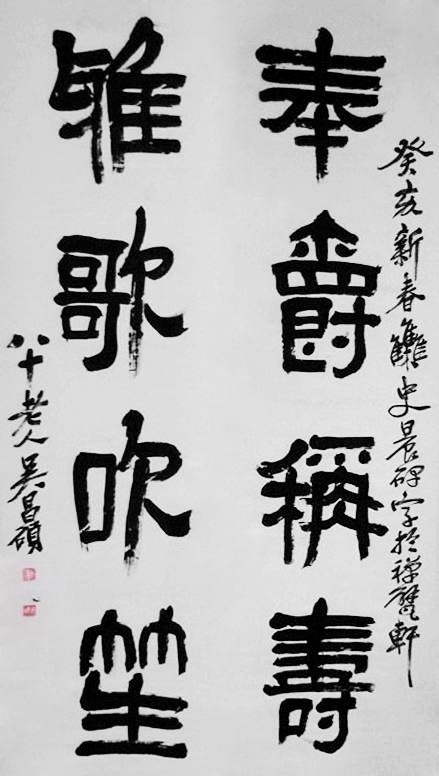 癸亥新春雧史晨碑字於禪甓軒
奉爵稱壽
雅歌吹笙
八十老人吳昌碩